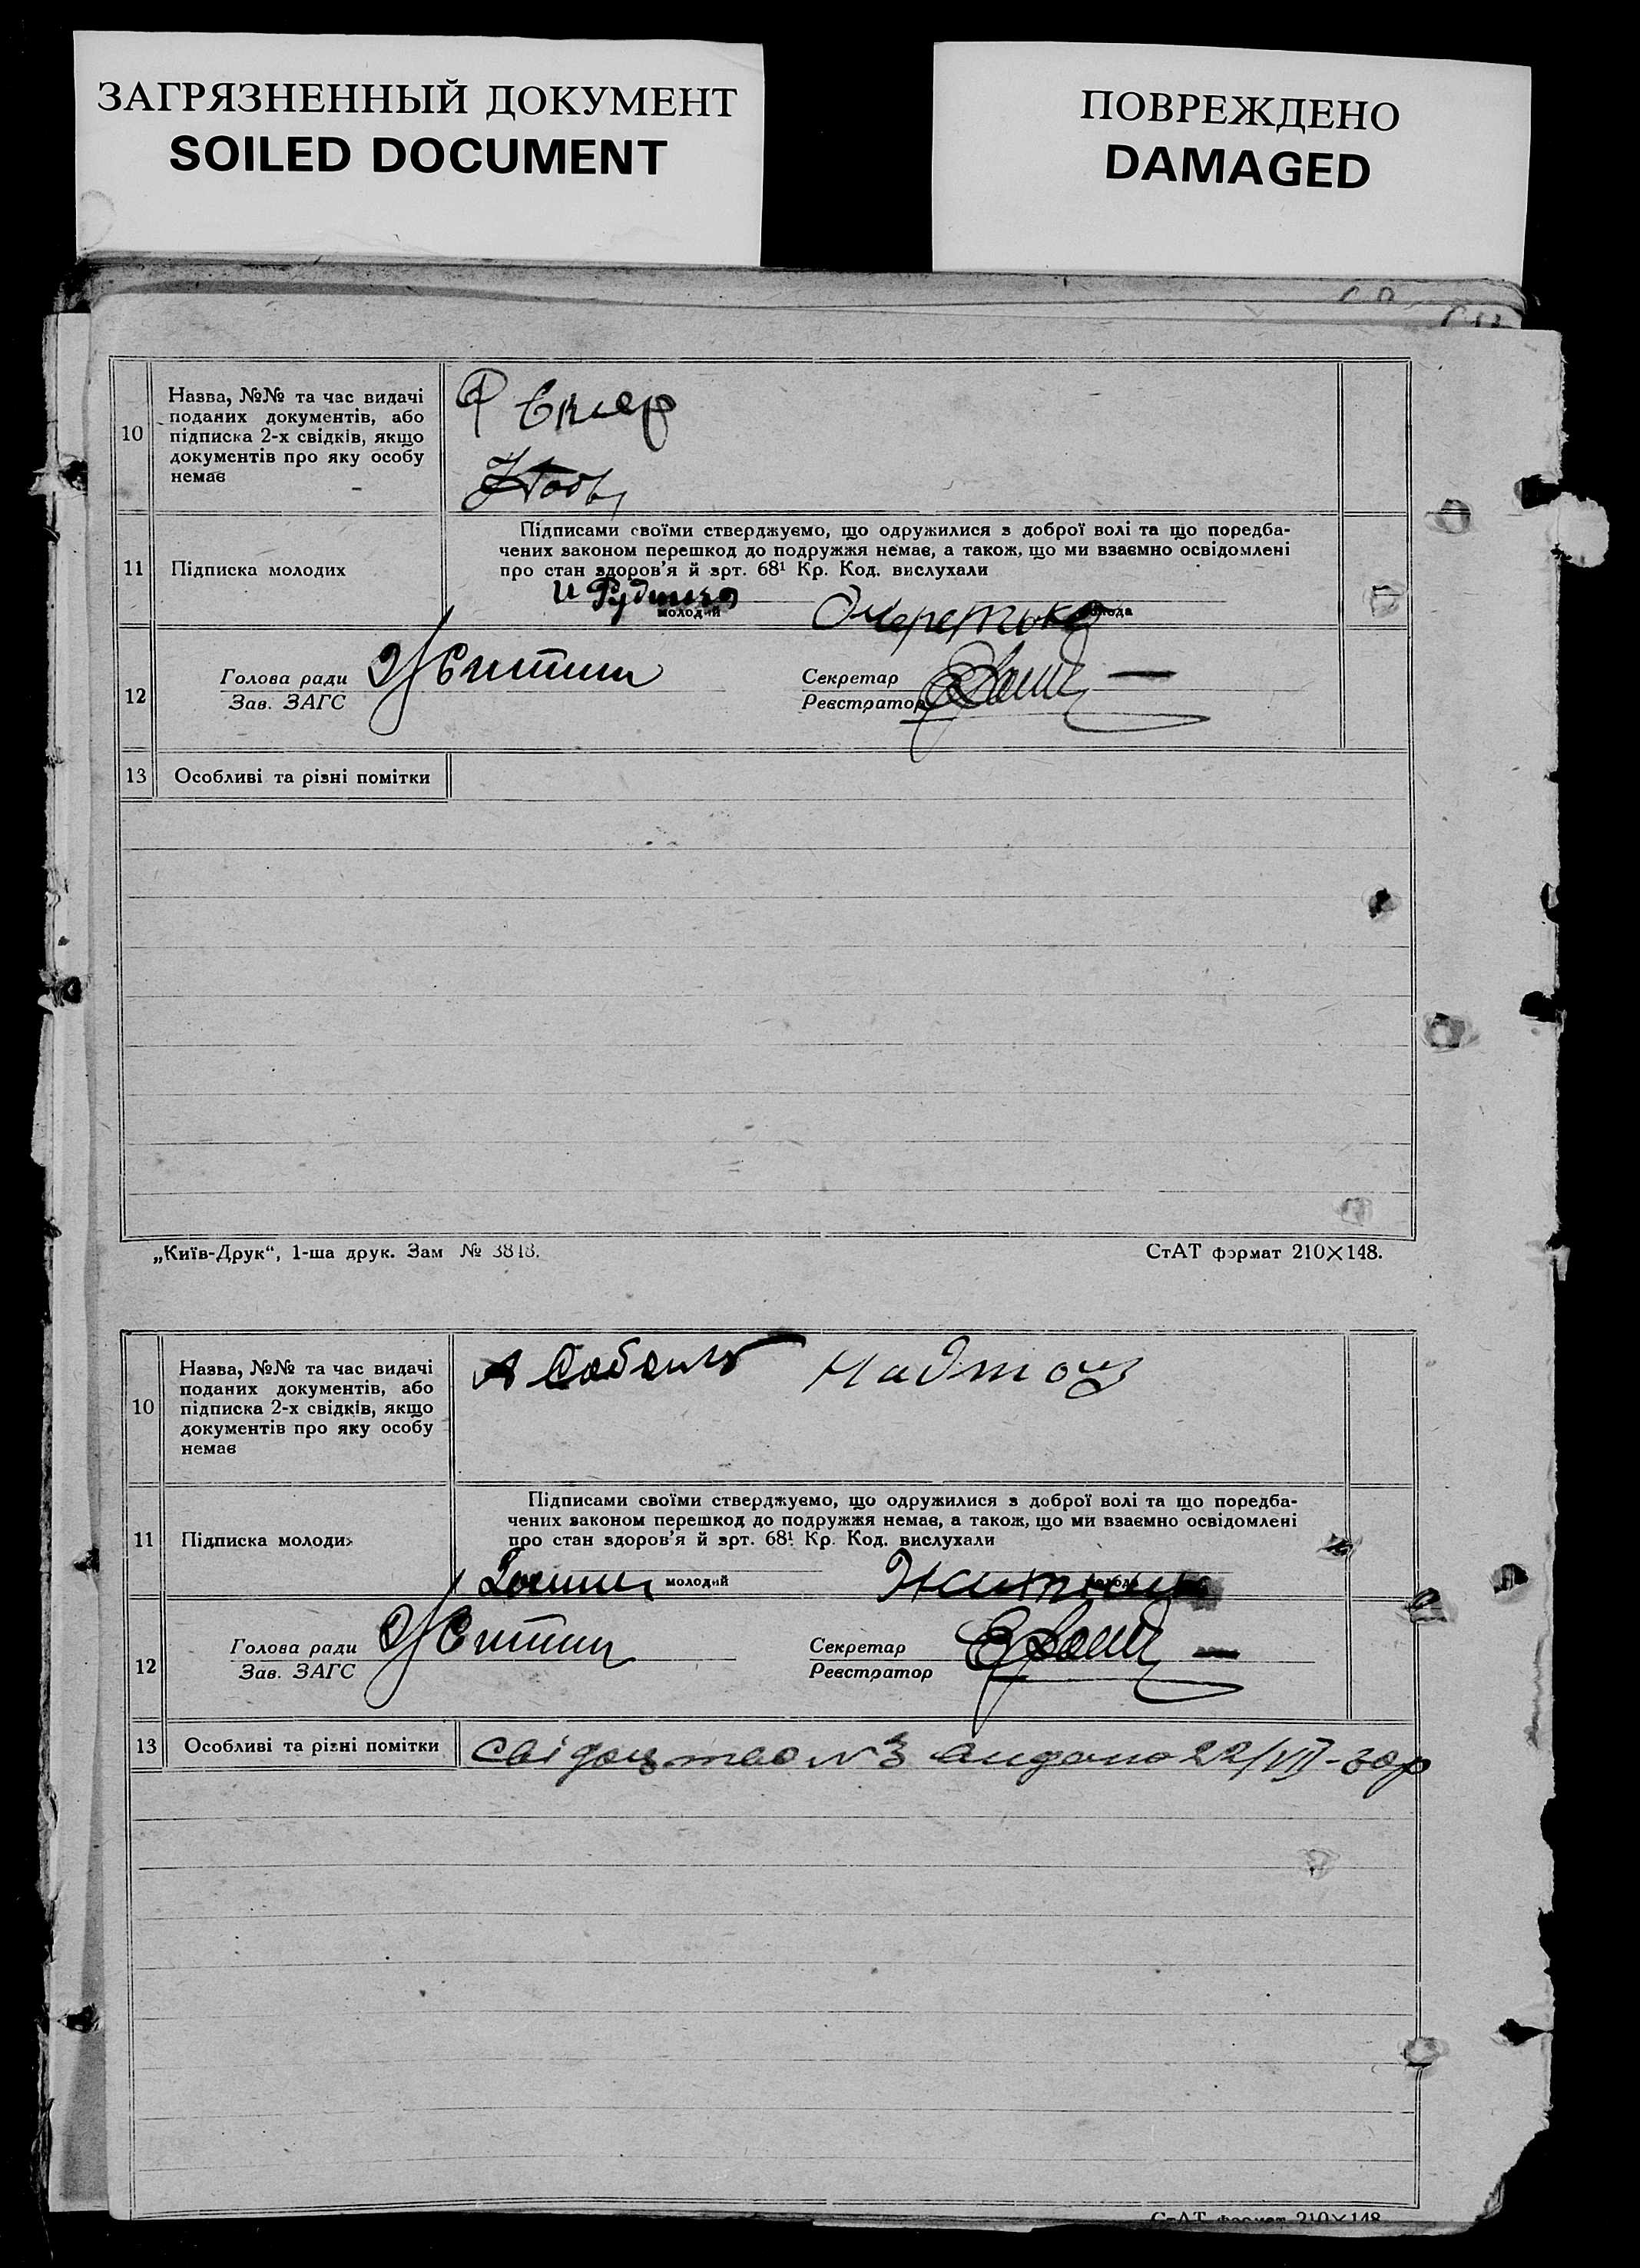 ЗАГРЯЗНЕННЫЙ ДОКУМЕНТ
SOILED DOCUMENT
ПОВРЕЖДЕНО
DAMAGED
10
Назва, №№ та час видачі
поданих документів, або
підписка 2-х свідків, якщо
документів про яку особу
немає
11
Підписка молодих
Підписами своїми стверджуємо, що одружилися з доброї волі та що поредба-
чених законом перешкод до подружжя немає, а також, що ми взаємно освідомлені
про стан здоров'я й арт. 68¹ Кр. Код. вислухали
молодий
молода
12
Голова ради
Зав. ЗАГС
Секретар
Реєстратор
13
Особливі та різні помітки
„Київ-Друк“, 1-ша друк. Зам № 3818.
СтАТ формат 210×148.
10
Назва, №№ та час видачі
поданих документів, або
підписка 2-х свідків, якщо
документів про яку особу
немає
А Соболь Надточ
11
Підписка молодих
Підписами своїми стверджуємо, що одружилися з доброї волі та що поредба-
чених законом перешкод до подружжя немає, а також, що ми взаємно освідомлені
про стан здоров'я й арт. 68¹ Кр. Код. вислухали
молодий
молода
12
Голова ради
Зав. ЗАГС
Секретар
Реєстратор
13
Особливі та різні помітки
Свідоцтво № 3 видано 22/VII-30р
СтАТ формат 210×148